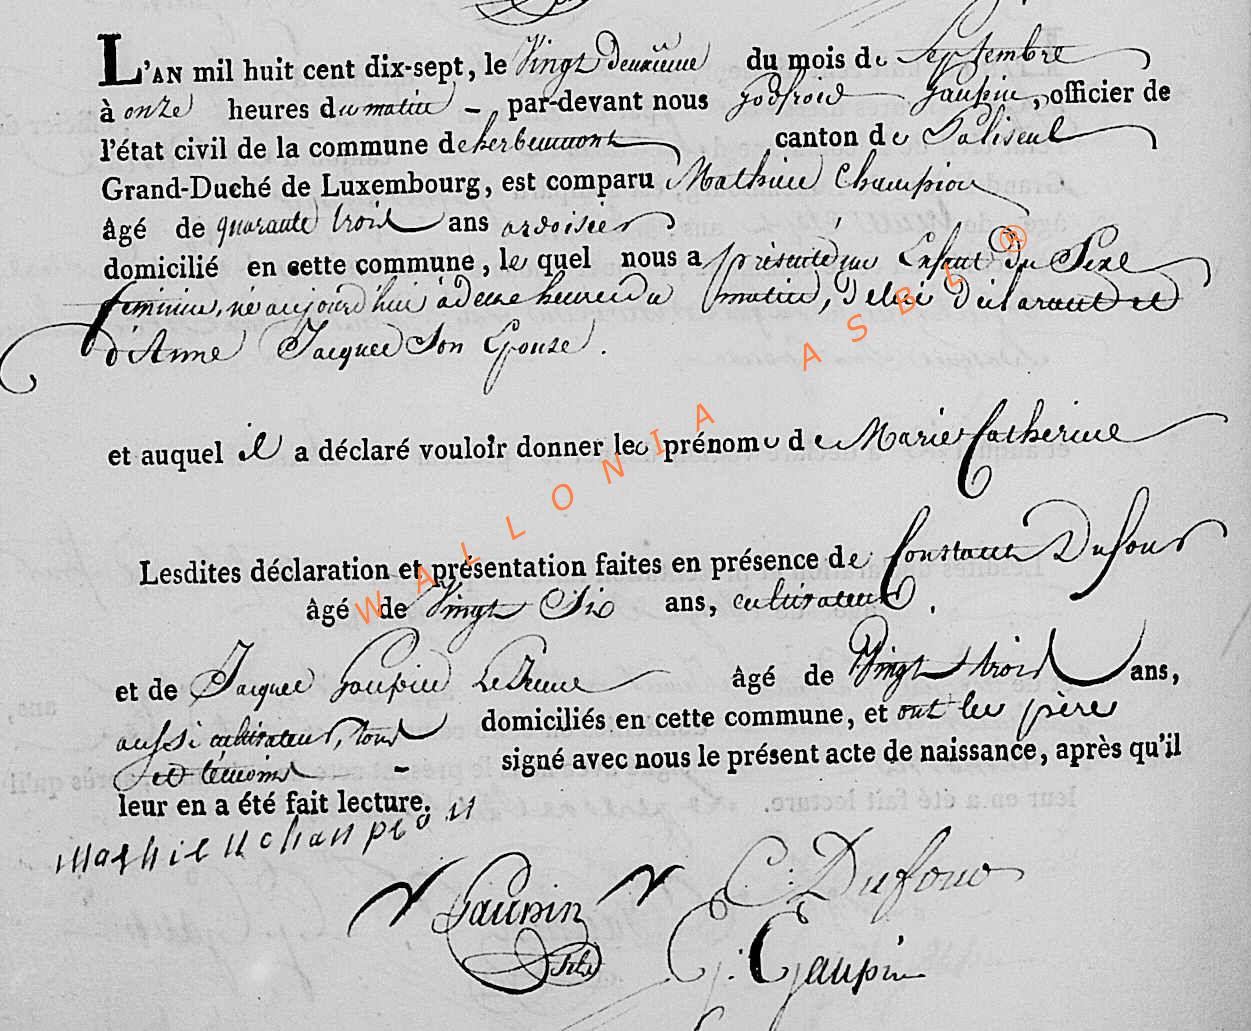 L'AN mil huit cent dix-sept, le Vingt deuxieme du mois de Septembre
à onze heures du matin - par-devant nous Godfroid Gaupin, officier de
l'état civil de la commune de herbeumont canton de Paliseul
Grand-Duché de Luxembourg, est comparu Mathieu Champion
âgé de quarante trois ans ardoisier
domicilié en cette commune, le quel nous a présenté un Enfant du Sexe
feminin, né aujourd'hui à deux heures du matin, de lui déclarant et
d'Anne Jacques Son Epouse.
et auquel il a déclaré vouloir donner les prénoms de Marie Catherine
Lesdites déclaration et présentation faites en présence de Constant Dufour
âgé de Vingt Six ans, cultivateur.
et de Jacques Gaupin Le Jeune âgé de Vingt trois ans,
aussi cultivateur, tous domiciliés en cette commune, et ont les père
et témoins - signé avec nous le présent acte de naissance, après qu'il
leur en a été fait lecture.
mathieu champion
C: Dufour
Gaupin
fils
G: Gaupin
WALLONIA ASBL ®